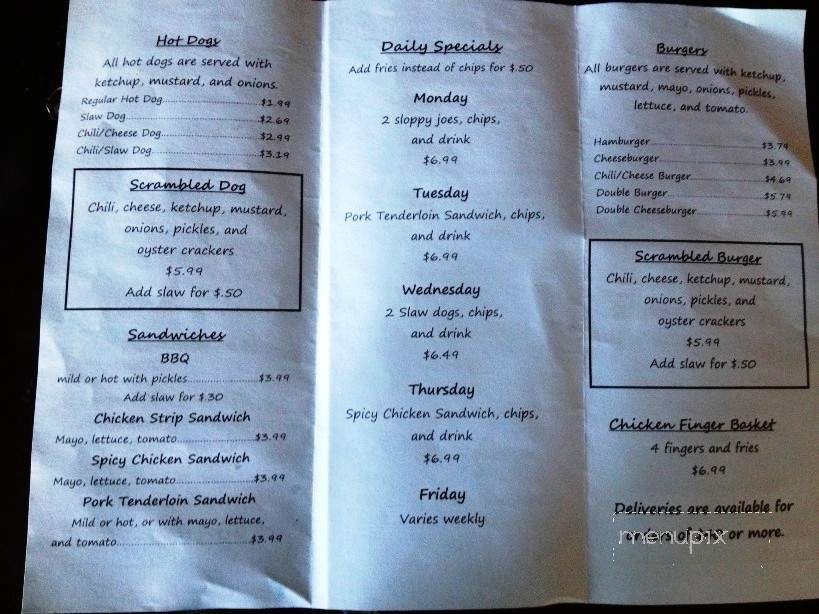 Hot Dogs
All hot dogs are served with
ketchup, mustard, and onions.
Regular Hot Dog........$1.99
Slaw Dog........$2.69
Chili/Cheese Dog........$2.99
Chili/Slaw Dog........$3.19
Scrambled Dog
Chili, cheese, ketchup, mustard,
onions, pickles, and
oyster crackers
$5.99
Add slaw for $.50
Sandwiches
BBQ
mild or hot with pickles........$3.99
Add slaw for $.30
Chicken Strip Sandwich
Mayo, lettuce, tomato........$3.99
Spicy Chicken Sandwich
Mayo, lettuce, tomato........$3.99
Pork Tenderloin Sandwich
Mild or hot, or with mayo, lettuce,
and tomato........$3.99
Daily Specials
Add fries instead of chips for $.50
Monday
2 sloppy joes, chips,
and drink
$6.99
Tuesday
Pork Tenderloin Sandwich, chips,
and drink
$6.99
Wednesday
2 Slaw dogs, chips,
and drink
$6.49
Thursday
Spicy Chicken Sandwich, chips,
and drink
$6.99
Friday
Varies weekly
Burgers
All burgers are served with ketchup,
mustard, mayo, onions, pickles,
lettuce, and tomato.
Hamburger........$3.79
Cheeseburger........$3.99
Chili/Cheese Burger........$4.69
Double Burger........$5.79
Double Cheeseburger........$5.99
Scrambled Burger
Chili, cheese, ketchup, mustard,
onions, pickles, and
oyster crackers
$5.99
Add slaw for $.50
Chicken Finger Basket
4 fingers and fries
$6.99
Deliveries are available for
orders of or more.
menupix